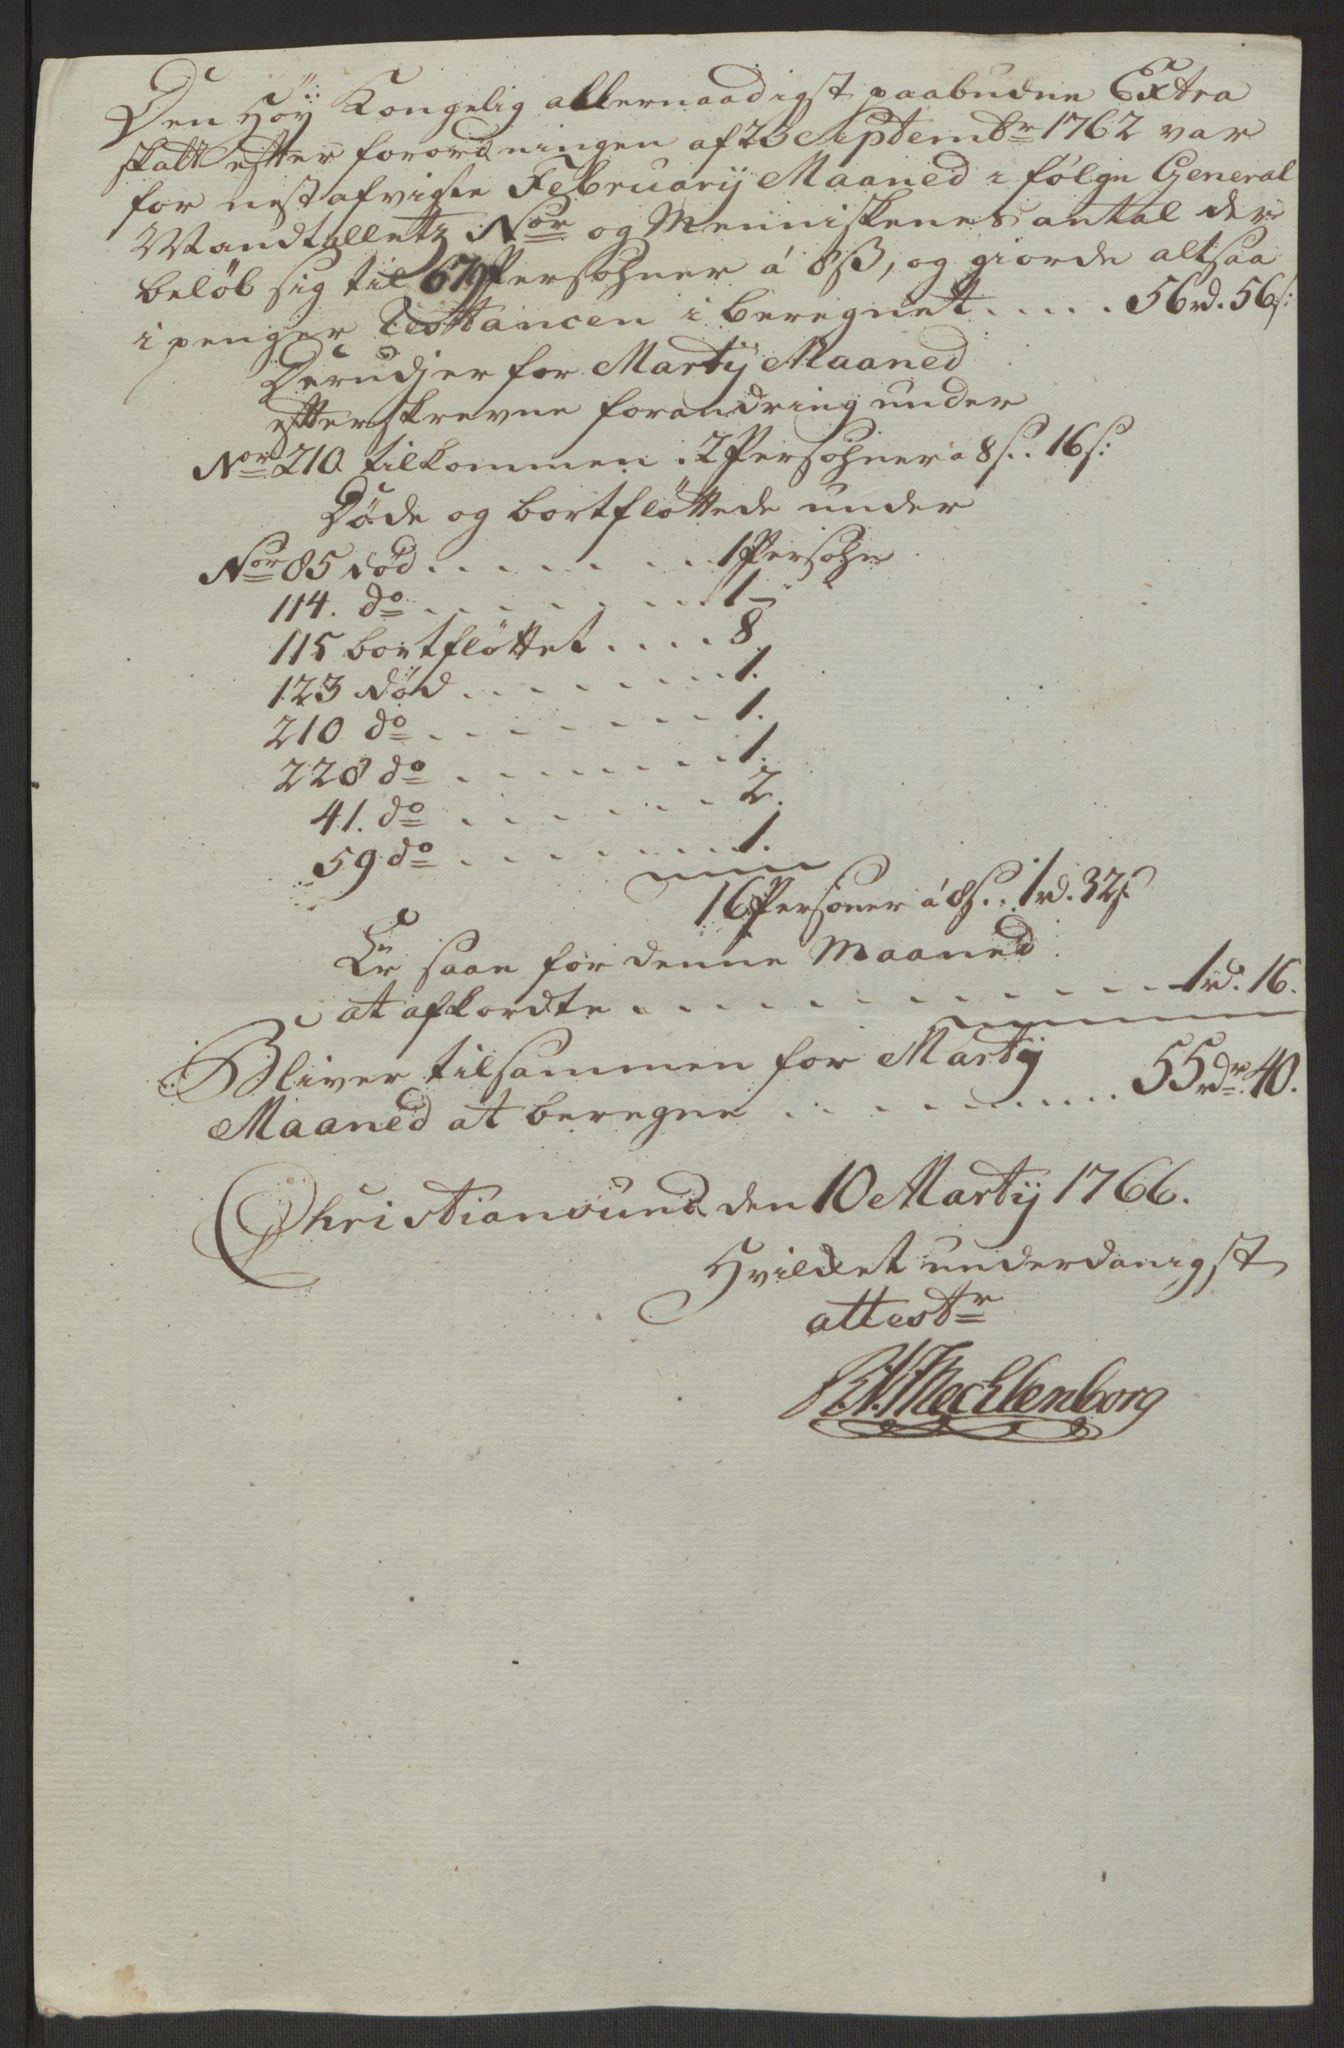 Den Høÿ Kongelig allernaadigst paabudne Extra
skatt efter forordningen af 23 Septembr 1762 var
for nest afvigte Februarij Maaned i følge General
Mandtalletz Nor og Menniskenes antal der
beløb sig til 679 Persohner á 8ß, og giorde altsaa
i penger Restancen i beregnet . . . . . 56rd. 56s:
Derudj er for Martij Maaned
efterskrevne forandring under
Nor 210 tilkommen . 2 Persohner a 8s. . 16s:
Døde og bortfløttede under
Nor 85 død . . . . . . . . 1 Persohn
114. do . . . . . . . . 1 –
115 bortfløttet . . . . 8.
123 død . . . . . . . . 1.
210 do . . . . . . . . 1.
228 do . . . . . . . . 1.
41. do . . . . . . . . 2.
59 do . . . . . . . . 1.
16 Personer á 8s. . 1rd. 32s.
Er saa for denne Maaned
at afkordte . . . . . . . . . . . . 1rd. 16.
Bliver tilsammen for Martij
Maaned at beregne . . . . . . . . . . 55rdr. 40.
Christiansund den 10 Martij 1766.
Hvilket underdanigst
attestr
Mechlenborg